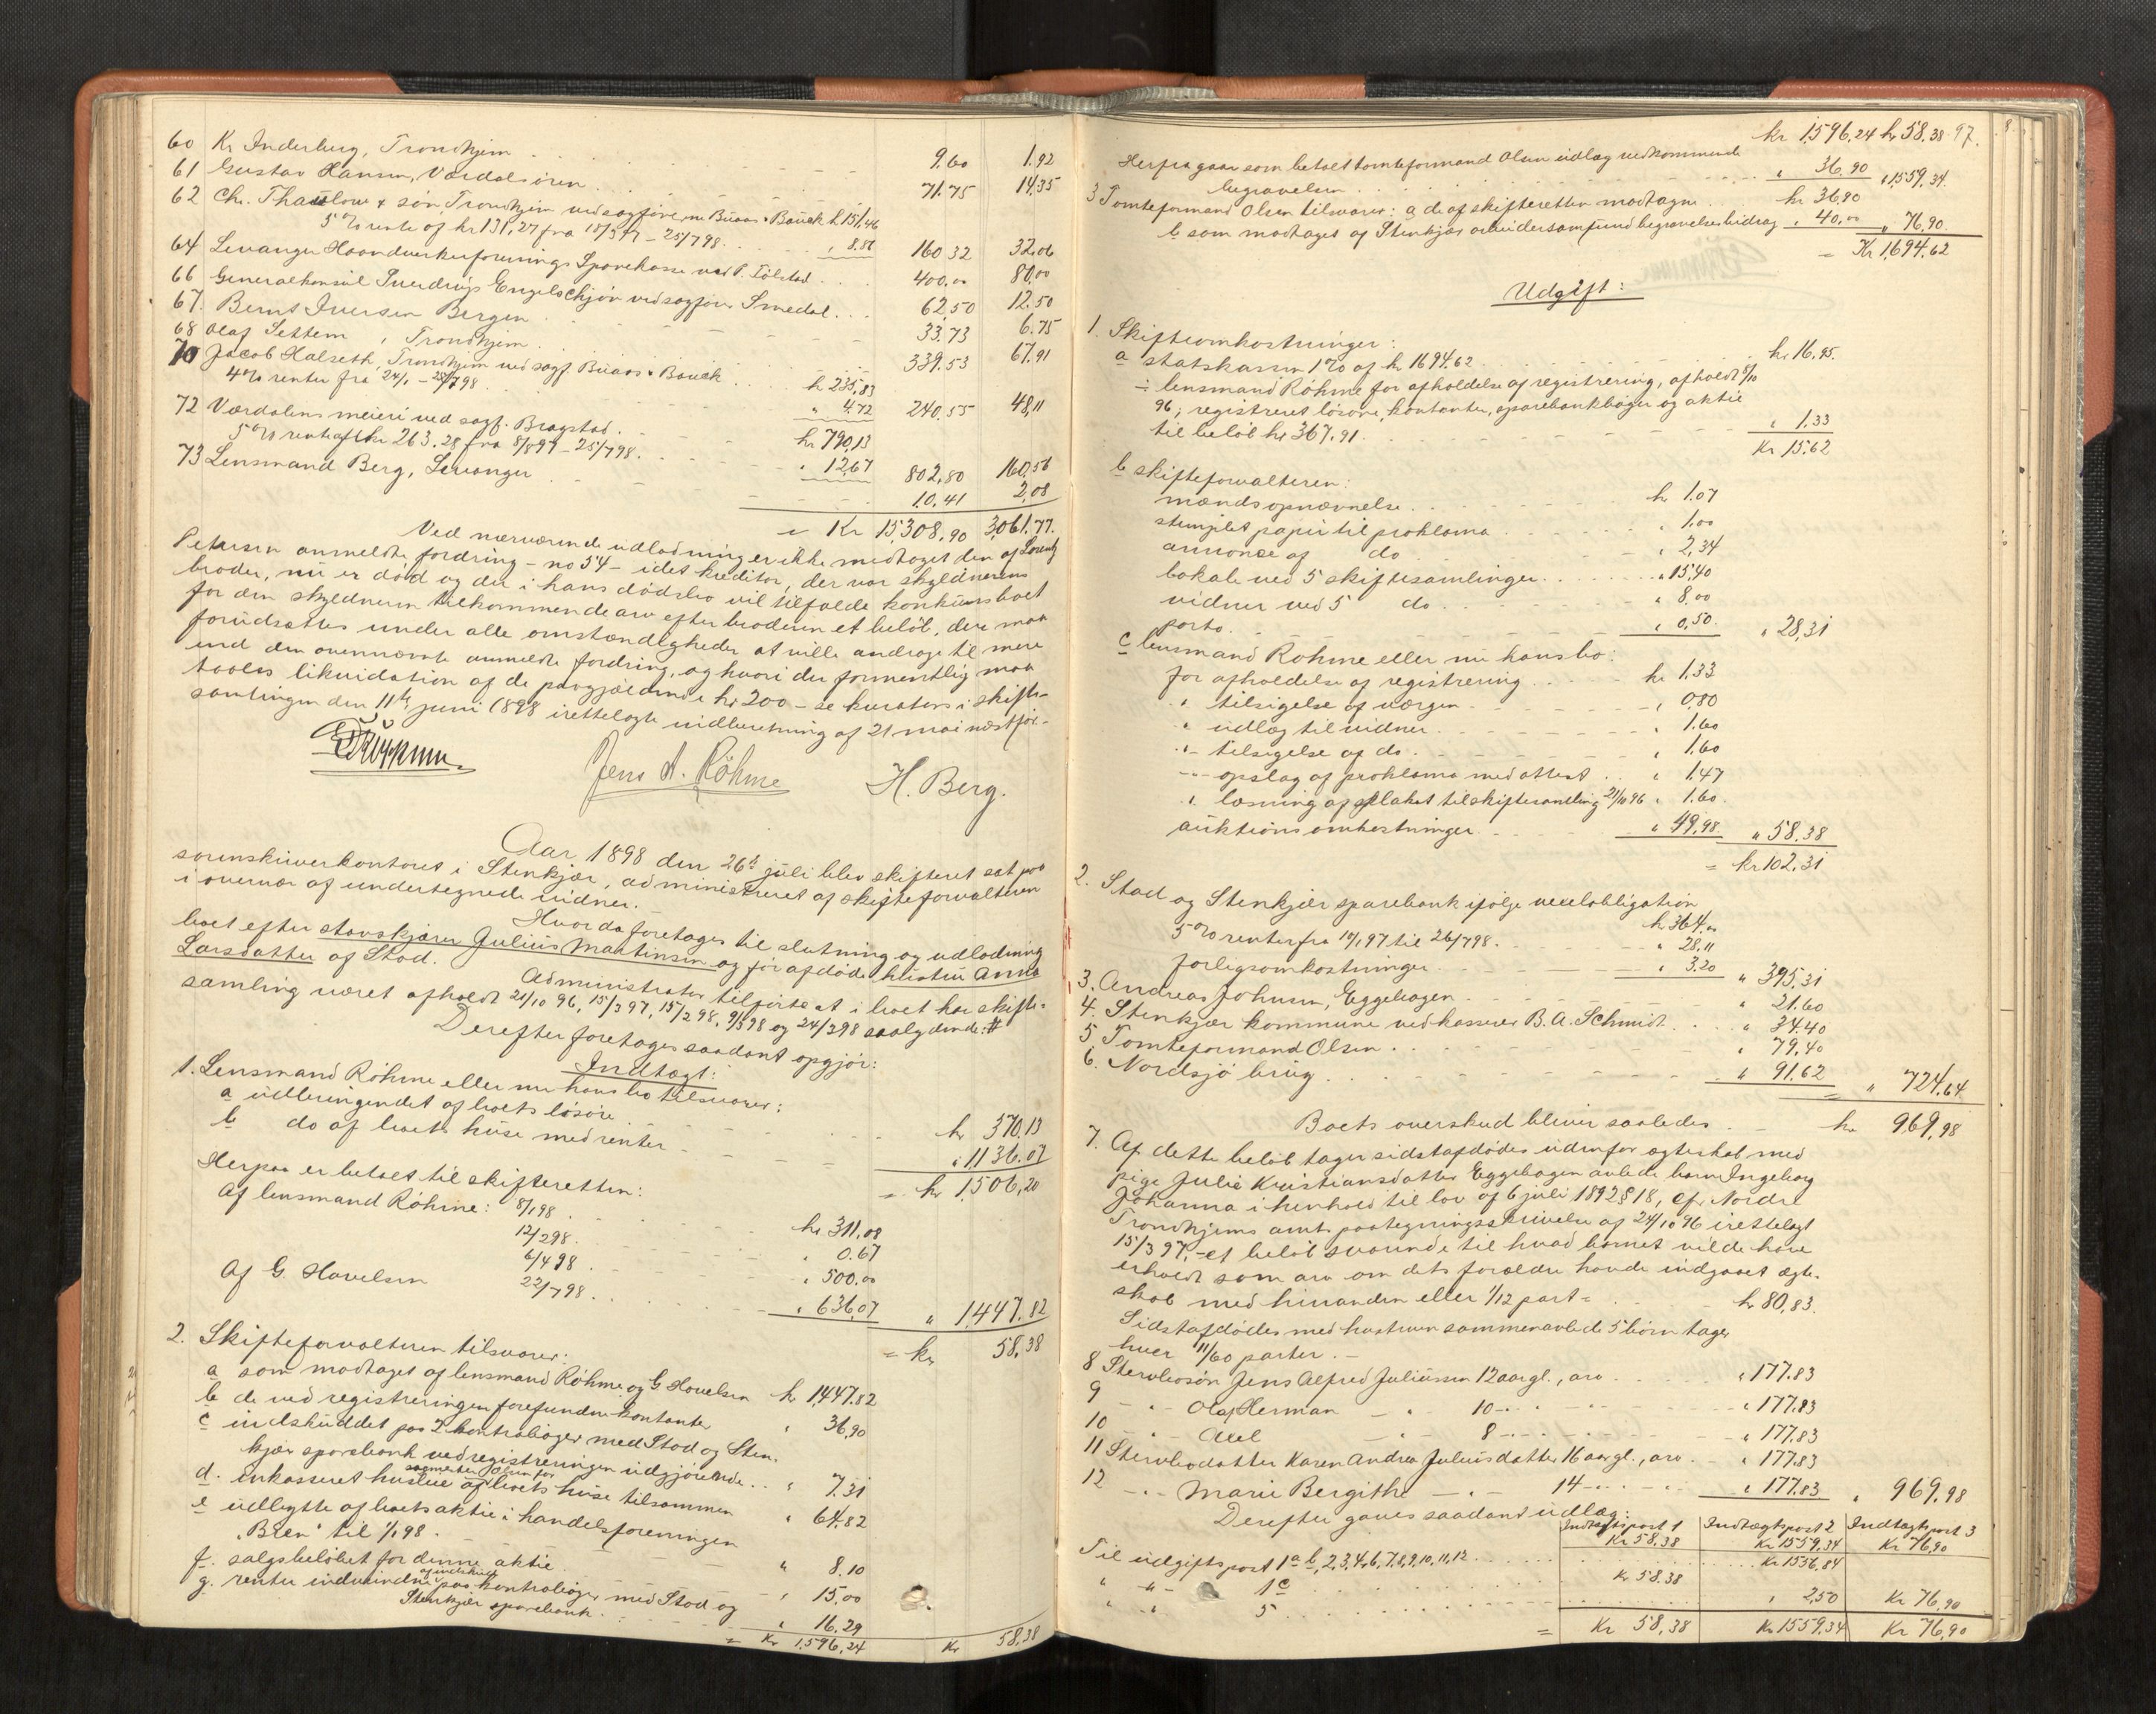 60 Kr Inderberg, Trondhjem . . . 9,60 1.92
61 Gustav Hansen, Værdalsøren . . . 71.75 14,35
62 Ch. Thaulow & søn, Trondhjem ved sagførerne Buaas & Bauck kr 151,46
5 % rente af kr 131,27 fra 18/3 97 - 25/7 98 . . . " 8.86 160 32 32,06
64 Levanger Haandverkerforenings Sparekasse ved P. Tølstad . . . 400,00 80,00
66 Generalkonsul Sverdrups Engelschjøn ved sagfører Smedal . . . 62,50 12.50
67. Bernt Iversen Bergen . . . 33.73 6.75
68 Olaf Settem, Trondhjem . . . 339.53 67,91
70 Jacob Halseth, Trondhjem ved sagf. Buaas & Bauck . . . kr 235,83
4 % renter fra 24/1 - 25/7 98 . . . " 4.72 240,55 48,11
72 Værdalens meieri ved sagf. Bragstad . . . kr 790,13
5 % rente af kr 263.28 fra 8/8 97 - 25/7 98 . . . " 12,67 802,80 160,56
73 Lensmand Berg, Levanger . . . 10.41 2,08
= Kr 15,308,90 3,061.77.
Ved nærværende udlodning er ikke medtaget den af Lorentz
Petersen anmeldte fordring - no 54 - idet kreditor, der var skyldnerens
broder, nu er død og der i hans dødsbo vil tilfalde konkursboet
for den skyldneren tilkommende arv efter broderen et beløb, der maa
forudsættes under alle omstændigheder at ville andrage til mere
end den ovennævnte anmeldte fordring, og hvori der formentlig maa
taales likvidation af de paagjældende kr 200 - se kurators i skifte-
samlingen den 11te juni 1898 irettelagte indberetning af 21 mai næstfør.
Jens A. Røhme H. Berg.
Aar 1898 den 26de juli blev skifteret sat paa
sorenskriverkontoret i Stenkjær, administreret af skifteforvalteren
i overvær af undertegnede vidner.
Hvor da foretages til slutning og udlodning
boet efter stavskjærer Julius Martinsen og før afdøde hustru Anna
Larsdatter af Stod.
Administrator tilførte at i boet har skifte-
samling været afholdt 21/10 96, 15/3 97, 15/2 98, 9/3 98 og 24/2 98 saalydende: #
Derefter foretages saadant opgjør:
Indtægt:
1. Lensmand Røhme eller nu hans bo tilsvarer:
a udbringendet af boets løsøre . . . kr 370,13
b do af boets huse med renter . . . " 1136.07
= kr 1,506,20
Herpaa er betalt til skifteretten:
Af lensmand Røhme: 8/1 98 . . . kr 311,08
12/2 98. . . . " 0.67
6/4 98 . . . " 500.00
Af G. Havelsen 22/7 98. . . . " 636,07 " 1,447.82
= kr 58,38
2. Skifteforvalteren tilsvarer:
a som modtaget af lensmand Røhme og G Hovelsen kr 1,447.82
b de ved registreringen forefundne kontanter " 36,90
c indskuddet paa 2 kontrabøger med Stod og Sten-
kjær sparebank ved registreringen udgjørende . . " 7.31
d. inkasseret husleie af boets huse tilsammen " 64,82
e udbytte af boets aktie i handelsforeningen
"Bien" til 1/1 98. . . . " 8.10
f. salgsbeløbet for denne aktie . . . " 15,00
g. renter indvundne af indskud paa kontrabøger med Stod og
Stenkjær sparebank. . . . " 16.29
= Kr 1,596,24 Kr 58,38
kr 1,596,24 kr 58,38 97.
Herfra gaar som betalt tomteformand Olsen udlæg vedkommende
begravelsen . . . " 36,90 " 1,559,34.
3 Tomteformand Olsen tilsvarer: a de af skifteretten modtagne . . kr 36,90
b som modtaget af Stenkjær arbeidersamfund begravelsesbidrag " 40,00 " 76,90.
= Kr 1,694,62
Udgift:
1. Skifteomkostninger:
a statskassen 1 % af kr 1694.62 . . . kr 16,95.
÷ lensmand Røhme for afholdelse af registrering, afholdt 8/10
96, registreret løsøre, kontanter, sparebankbøger og aktie
til beløb kr 367,91. . . . " 1,33
Kr 15.62
b skifteforvalteren:
mændsopnævnelse. . . . kr 1.07
stemplet papir til proklama . . . " 1.00
annonce af do . . . " 2,34
lokale ved 5 skiftesamlinger. . . . " 15,40
vidner ved 5 do. . . . " 8.00
porto. . . . " 0,50. " 28,31
c lensmand Røhme eller nu hans bo:
for afholdelse af registrering . . . kr 1.33
" tilsigelse af værgen . . . " 0,80
" udlæg til vidner . . . " 1.60
" - tilsigelse af do. . . . " 1,60
" - opslag af proklama med attest . . " 1.47
" læsning af plakat til skiftesamling 21/10 96 " 1.60.
auktions omkostninger . . . " 49,98 " 58,38
= kr 102,31
2. Stod og Stenkjær sparebank ifølge vexelobligation
kr 364.00
5 % renter fra 10/1 97 til 26/7 98. . . . " 28,11
forligsomkostninger . . . " 3.20 " 395,31
3. Andreas Johnsen, Eggehagen . . . " 21.60
4. Stenkjær kommune ved kasserer B. A. Schmidt . . . " 34.40
5 Tomteformand Olsen . . . " 79,40
6. Nordsjø brug . . . " 91.62 " 724,64
Boets overskud bliver saaledes . . kr 969,98
7. Af dette beløb tager sidstafdødes udenfor ægteskab med
pige Julie Kristiansdatter Eggehagen avlede barn Ingeborg
Johanna i henhold til lov af 6 juli 1892 § 18, cfr. Nordre
Trondhjems amts paategningsskrivelse af 24/10 96 irettelagt
15/3 97, - et beløb svarende til hvad barnet vilde have
erholdt som arv om dets forældre havde indgaaet ægte-
skab med hinanden eller 1/12 part = . . . kr 80,83.
Sidstafdødes med hustruen sammenavlede 5 børn tager
hver 11/60 parter. -
8 Stervbosøn Jens Alfred Juliussen 12 aar gl., arv . . . " 177.83
9 - " - Olaf Herman - " - 10 - . . . " 177.83
10 - " - Axel - " - 8 - . . . " 177.83
11 Stervbodatter Karen Andrea Juliusdatter 16 aar gl., arv . . " 177.83
12 - " - Marie Bergithe - " - 14 - . . . " 177.83 " 969,98
Derefter gaves saadant udlæg:
Indtægtspost 1 Indtægtspost 2 Indtægtspost 3
Kr 58,38 Kr 1559,34 Kr 76,90
Til udgiftspost 1 a b, 2, 3, 4, 6, 7, 8, 9, 10, 11, 12 . . . Kr 1556,84
" " - 1 c . . . Kr 58.38
" " 5 . . . " 2,50 Kr 76,90
= Kr 58,38 Kr 1559,34 Kr 76,90